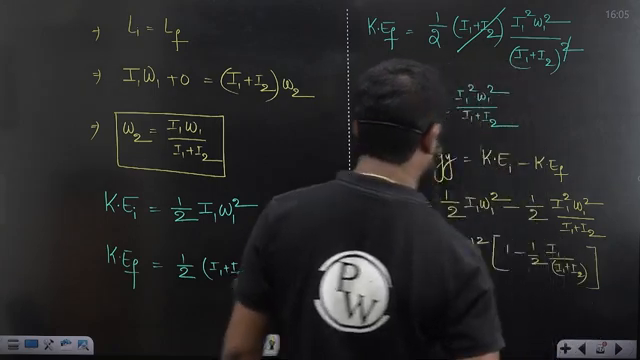 ⇒ Li = Lf
⇒ I₁ω₁ + 0 = (I₁+I₂)ω₂
⇒ ω₂ = I₁ω₁ / (I₁+I₂)
K·Ei = 1/2 I₁ω₁²
K·Ef = 1/2 (I₁+I
K·Ef = 1/2 (I₁+I₂) I₁²ω₁² / (I₁+I₂)²
I₁²ω₁² / (I₁+I₂)
gy = K·Ei − K·Ef
1/2 I₁ω₁² − 1/2 I₁²ω₁² / (I₁+I₂)
[1 − 1/2 I₁ / (I₁+I₂)]
PW
16:05